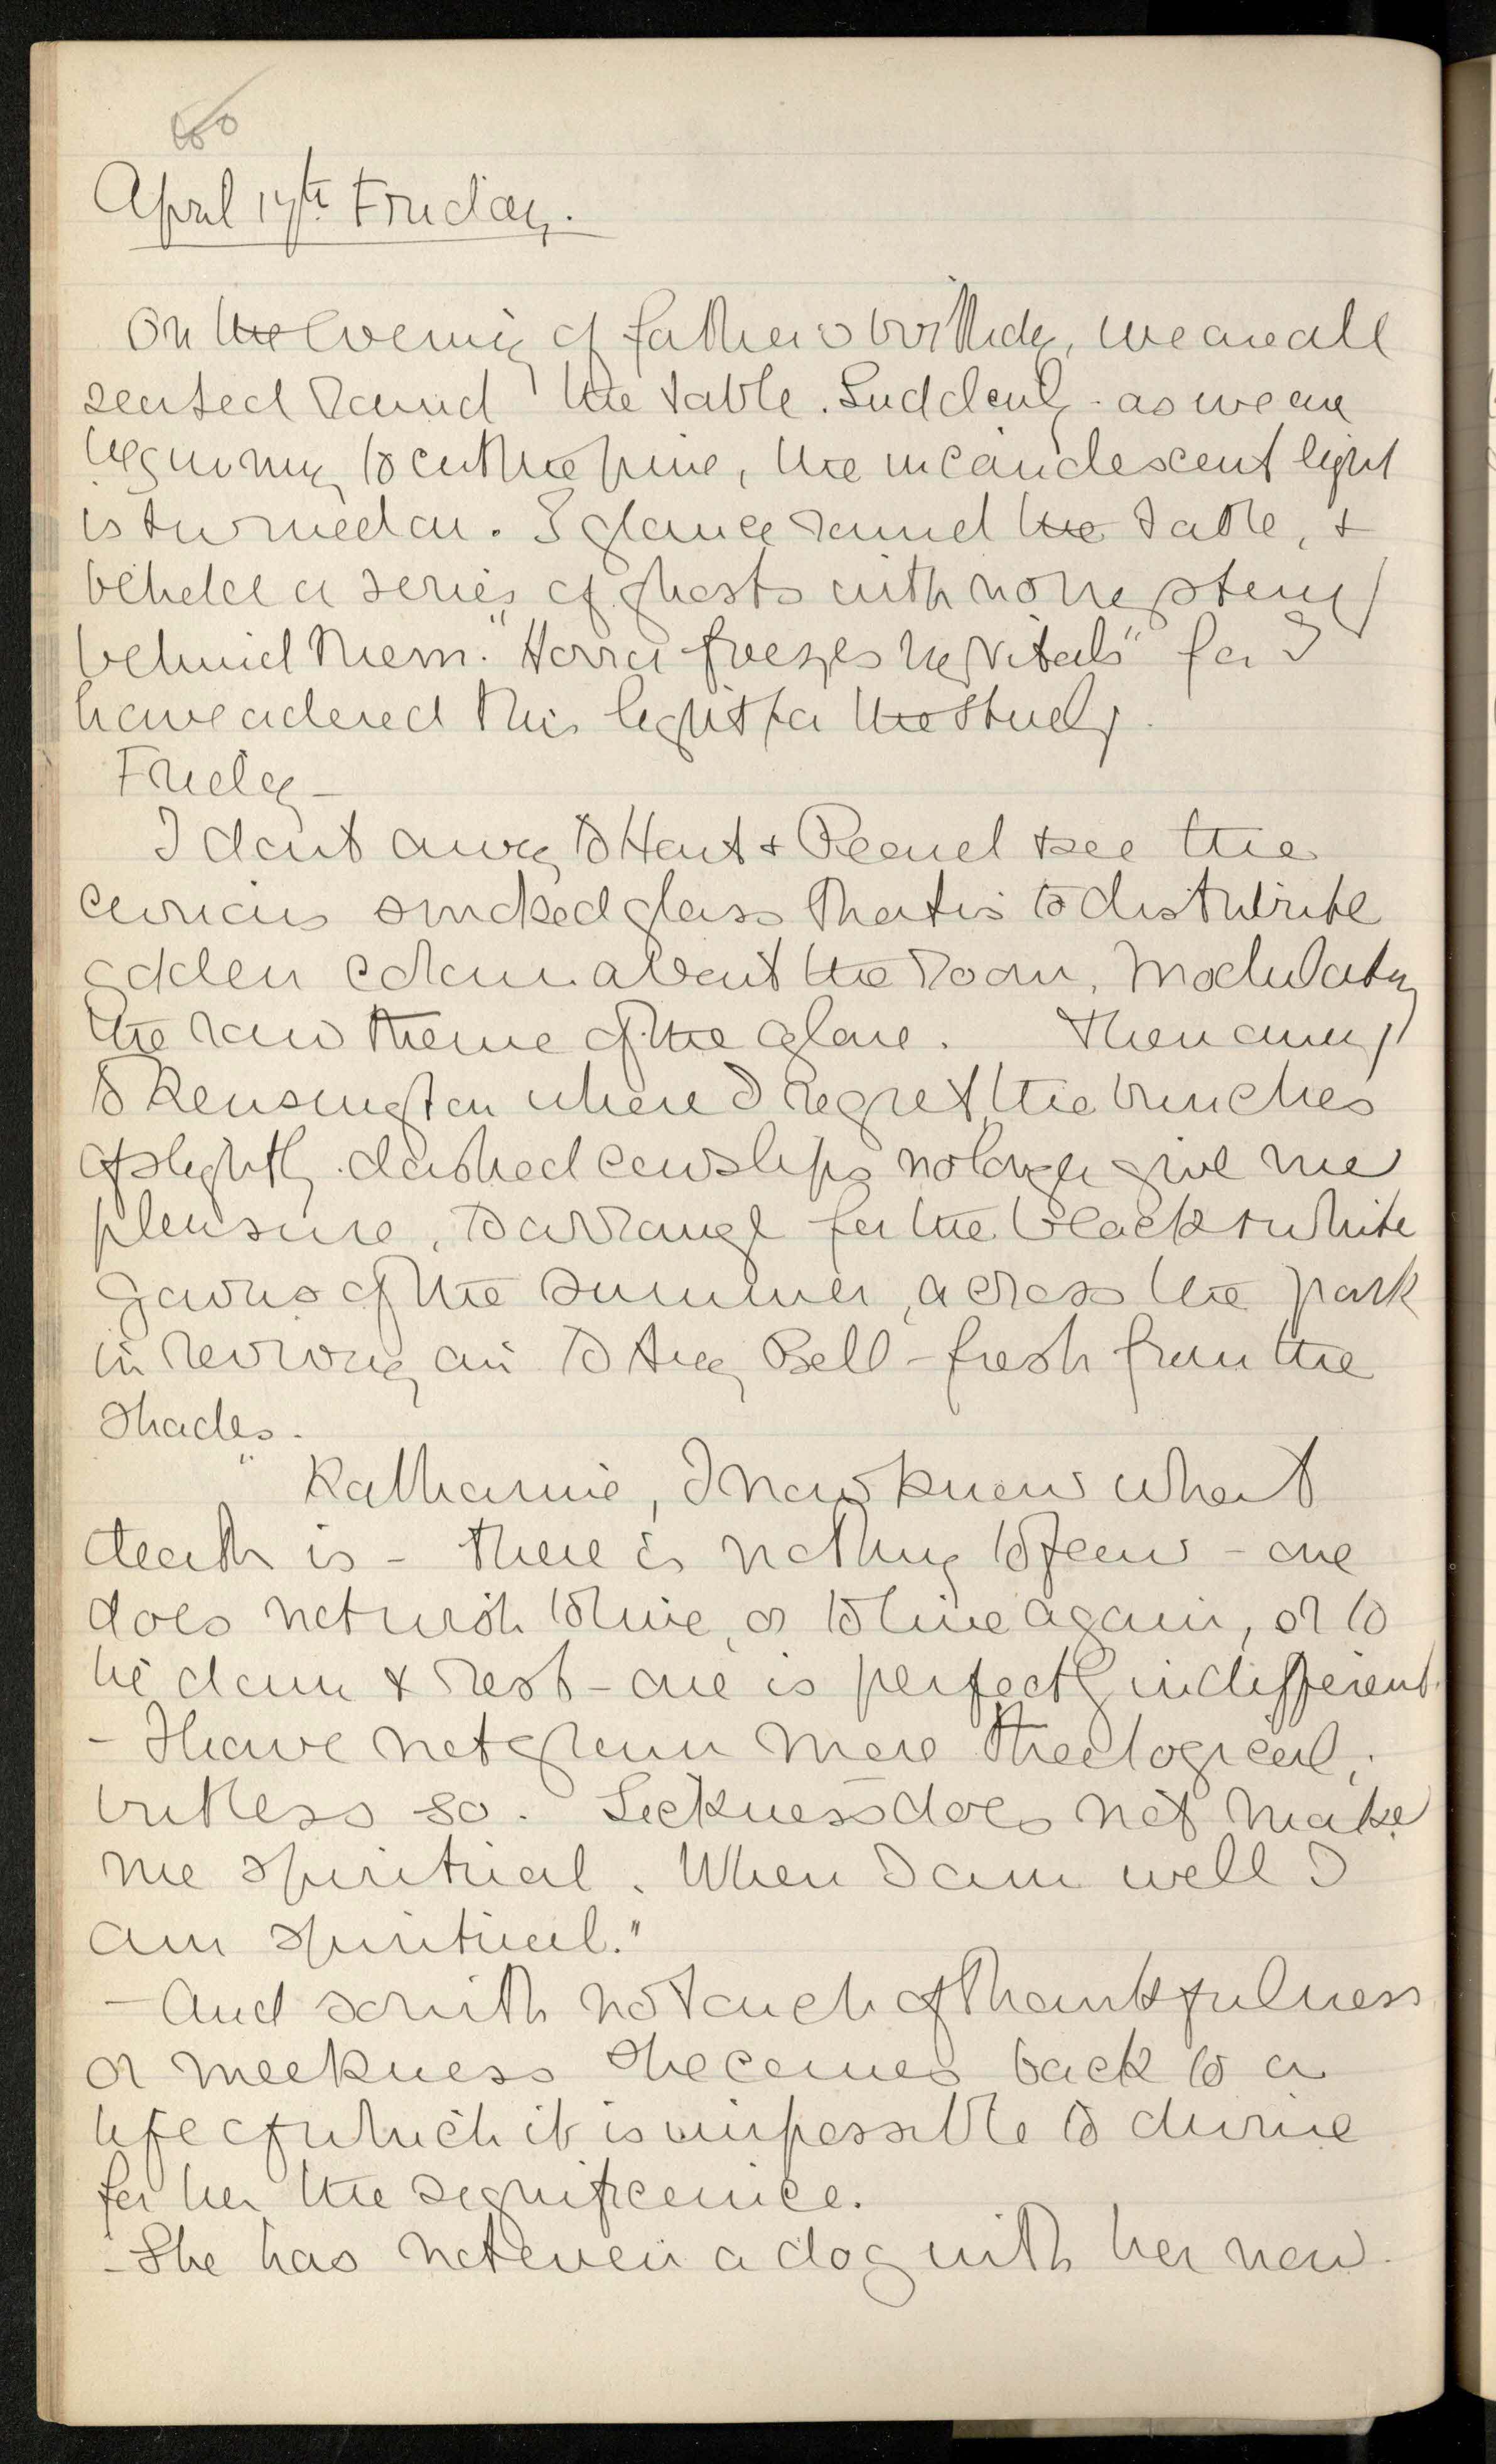 60
April 17th Friday.
On the evening of father's birthday, we are all
seated round the table. Suddenly - as we are
beginning to cut the pine, the incandescent light
is turned on. I glance round the table, &
behold a series of ghosts with no mystery
behind them. "Horror freezes my vitals" for I
have ordered this light for the study.
Friday -
I dart away to Hart & Peard & see the
curious smoked glass that is to distribute
golden colour about the room, modulating
the raw theme of the glare. Then away
to Kensington where I regret the bunches
of slightly dashed cowslips no longer give me
pleasure, to arrange for the black & white
gowns of the summer, across the park
in reviving air to Bell - fresh from the
shades.
"Katharine, I now know what
death is - there is nothing to fear - one
does not wish to live, or to live again, or to
lie down & rest - one is perfectly indifferent.
- I have not grown more theological,
but less so. Sickness does not make
me spiritual. When I am well I
am spiritual."
- And so with no touch of thankfulness
or meekness she comes back to a
life of which it is impossible to divine
for her the significance.
- She has not even a dog with her now.